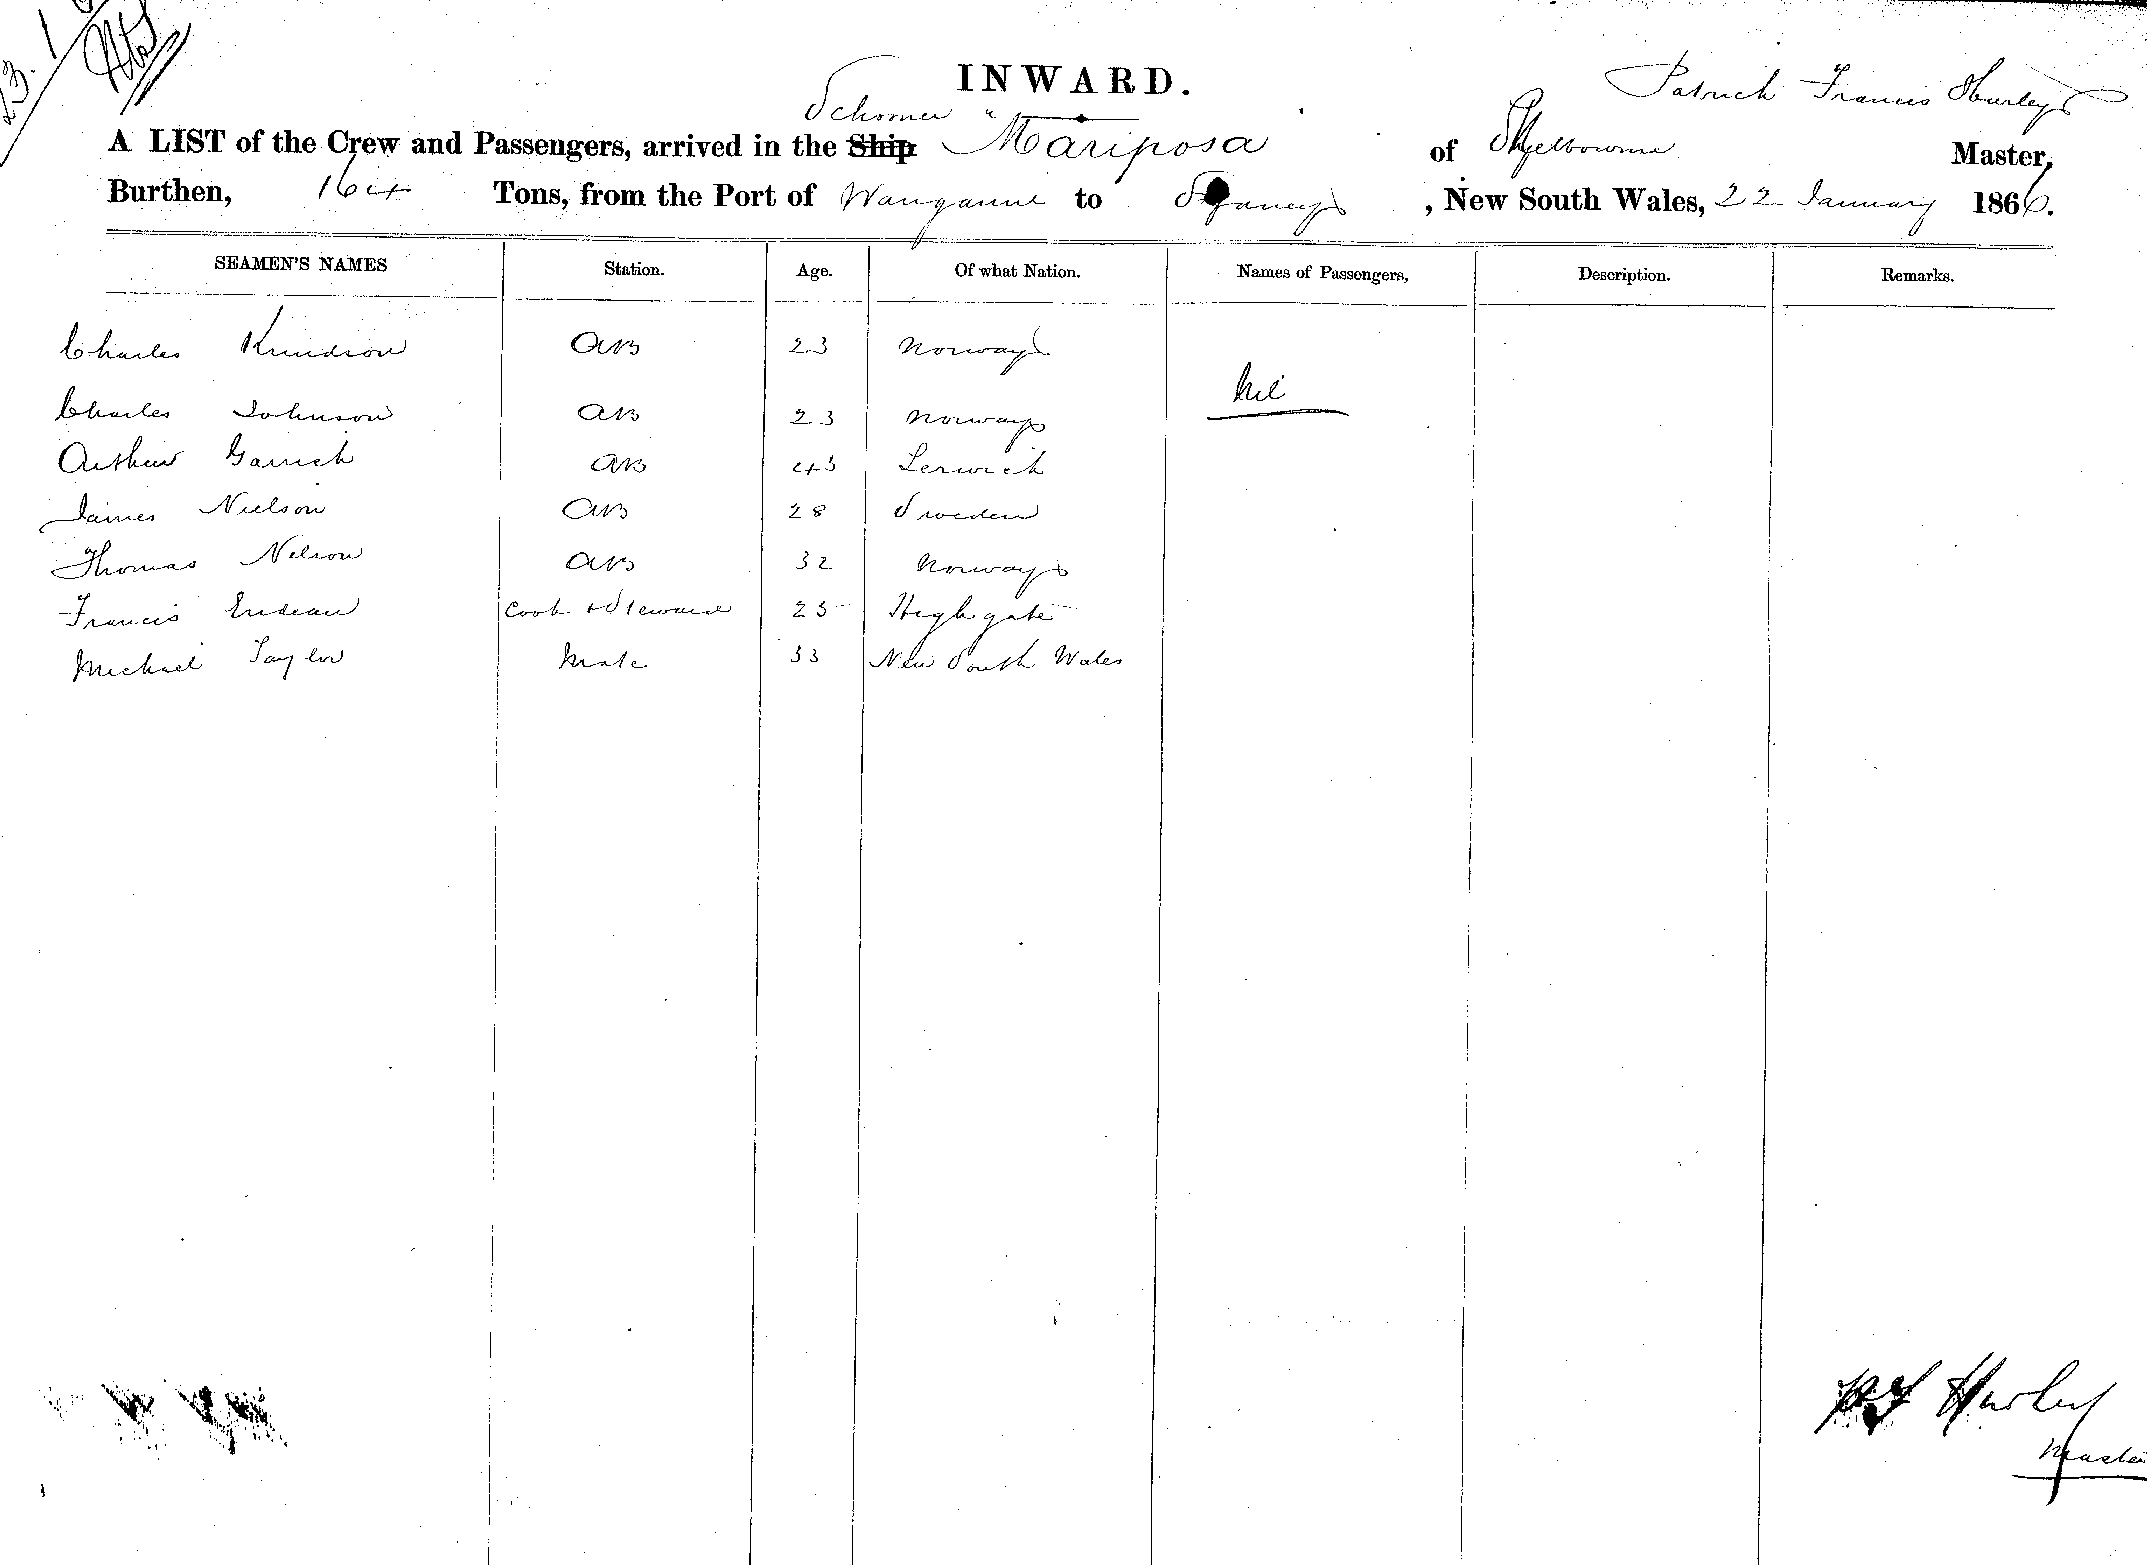 23. 1
INWARD.
Schooner Patrick Francis Hurley
A LIST of the Crew and Passengers, arrived in the Ship "Mariposa of Melbourne Master,
Burthen, 164 Tons, from the Port of Wanganui to Sydney, New South Wales, 22 January 1866.
SEAMEN'S NAMES Station. Age. Of what Nation. Names of Passengers, Description. Remarks.
Charles Knudson AB 23 Norway
Nil
Charles Johnson AB 23 Norway
Arthur AB 43 Lerwick
James Nielson AB 28 Sweden
Thomas Nelson AB 32 Norway
Francis Endean Cook & Steward 25 Highgate
Michael Taylor Mate 33 New South Wales
P F Hurley
Master